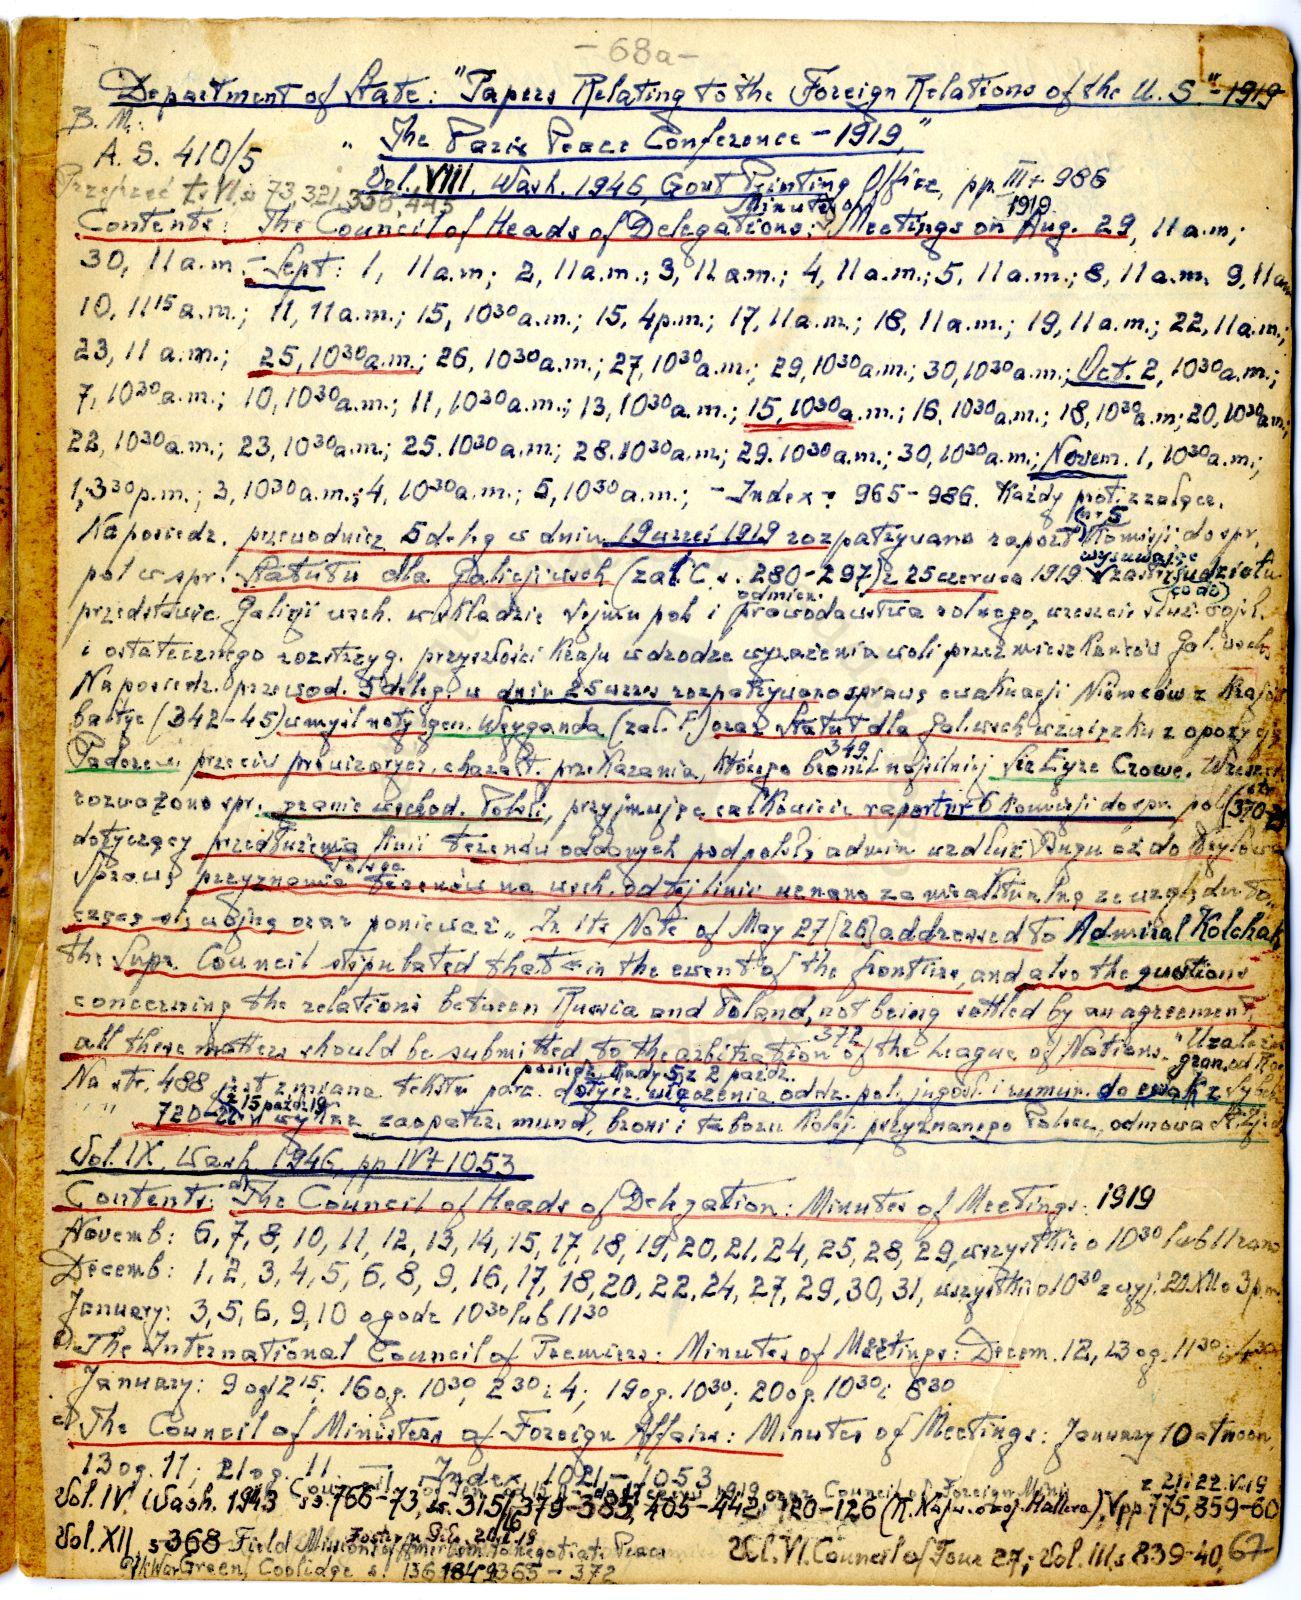 - 68a -
Department of State: "Papers Relating to the Foreign Relations of the U. S." - 1919
B. M.:
A. S. 410/5 " The Paris Peace Conference - 1919,"
Vol. VIII, Wash. 1946, Govt Printing Office, pp. III + 986
Przejrzeć t. VI, s. 73, 321, 350, 445
Minutes of 1919
Contents: The Council of Heads of Delegations: Meetings on Aug. 29, 11 a.m;
30, 11 a.m. - Sept: 1, 11 a.m; 2, 11 a.m.; 3, 11 a.m.; 4, 11 a.m.; 5, 11 a.m.; 8, 11 a.m. 9, 11 am
10, 11 15 a.m.; 11, 11 a.m.; 15, 10 30 a.m.; 15, 4 p.m.; 17, 11 a.m.; 18, 11 a.m.; 19, 11 a.m.; 22, 11 a.m.;
23, 11 a.m.; 25, 10 30 a.m.; 26, 10 30 a.m.; 27, 10 30 a.m.; 29, 10 30 a.m.; 30, 10 30 a.m.; Oct. 2, 10 30 a.m.;
7, 10 30 a.m.; 10, 10 30 a.m.; 11, 10 30 a.m.; 13, 10 30 a.m.; 15, 10 30 a.m.; 16, 10 30 a.m.; 18, 10 30 a.m; 20, 10 30 a.m.;
22, 10 30 a.m.; 23, 10 30 a.m.; 25. 10 30 a.m; 28. 10 30 a.m; 29. 10 30 a.m.; 30, 10 30 a.m.; Novem. 1, 10 30 a.m.;
1, 3 30 p.m.; 3, 10 30 a.m.; 4, 10 30 a.m.; 5, 10 30 a.m.; - Index: 965 - 986. Każdy prot. z załącz.
Na posiedz. przewodnicz. 5 deleg w dniu 19 wrześ 1919 rozpatrywano raport (nr 5) Komisji do spr.
pol w spr. Statutu dla Galicji wsch (zał C s. 280-297) z 25 czerwca 1919 wysuwając zastrz. udziału
przedstawic. Galicji wsch. w składzie Sejmu pol i odmien. prawodawstwa rolnego, wreszcie służ. wojsk.
i ostatecznego rozstrzyg. przyszłości kraju w drodze wyrażenia woli przez mieszkańców Gal. wsch.
Na posiedz. przewod. 5 deleg. w dniu 25 wrzes rozpatrywano sprawę ewakuacji Niemców z krajów
bałtyc (342-45) w myśl noty gen. Weyganda (zał. F) oraz statut dla Gal. wsch w związku z opozycją
Paderew. przeciw prowizorycz. charakt. przekazania, którego bronił najsilniej 349 Sir Eyre Crowe. Wreszcie
rozważono spr. granic wschod. Polski, przyjmując całkowicie raport nr 6 Komisji do spr. pol (str 370-
dotyczący przedłużenia linii terenów oddanych pod polską admin wzdłuż Bugu aż do
Sprawę przyznania Polsce terenów na wsch. od tej linii uznano za nieaktualną ze względu to
czącą się wojnę oraz ponieważ „In its Note of May 27 [26] addressed to Admiral Kolchak
the Supr. Council stipulated that in the event of the frontiers, and also the questions
concerning the relations between Russia and Poland, not being settled by an agreement,
all these matters should be submitted to the arbitration of the League of Nations." 372
Na str. 488 jest zmiana tekstu para. posiedz. Rady 5, z 2 paźdz. dotycz. włączenia oddz. pol. jugosł. i rumuń. do ewak z Syber
" 720-22 z 15 paźdz. 19 zaopatrz. mund, broni i taboru kolej. przyznanego Polsce, odmowa St. Zj.
Vol. IX, Wash. 1946, pp. IV + 1053
Contents: a) The Council of Heads of Delegation: Minutes of Meetings: 1919
Novemb: 6, 7, 8, 10, 11, 12, 13, 14, 15, 17, 18, 19, 20, 21, 24, 25, 28, 29, wszystkie o 10 30 lub 11 rano
Decemb: 1, 2, 3, 4, 5, 6, 8, 9, 16, 17, 18, 20, 22, 24, 27, 29, 30, 31, wszystkie o 10 30 z wyj. 20. XII o 3 p.m.
January: 3, 5, 6, 9, 10 o godz 10 30 lub 11 30
b) The International Council of Premiers: Minutes of Meetings: Decem. 12, 13 og. 11 30 i 4 30
January: 9 og 12 15. 16 og. 10 30, 2 30 i 4; 19 og. 10 30; 20 og. 10 30 i 6 30
c) The Council of Ministers of Foreign Affairs: Minutes of Meetings: January 10 at noon,
13 og. 11; 21 og. 11. - Index 1021 - 1053
Vol. IV. Wash. 1943 ss. 766-73, ss. 315, 379-385, 405-442, 720-126 Vpp 775, 859-60
z 21 i 22. V. 19
Vol. XII, s 368 Field Missions of American to negotiat. Peace Vol. VI. Council of Four 27; Vol. III s 839-40, 67
Green, Coolidge s. 365 - 372